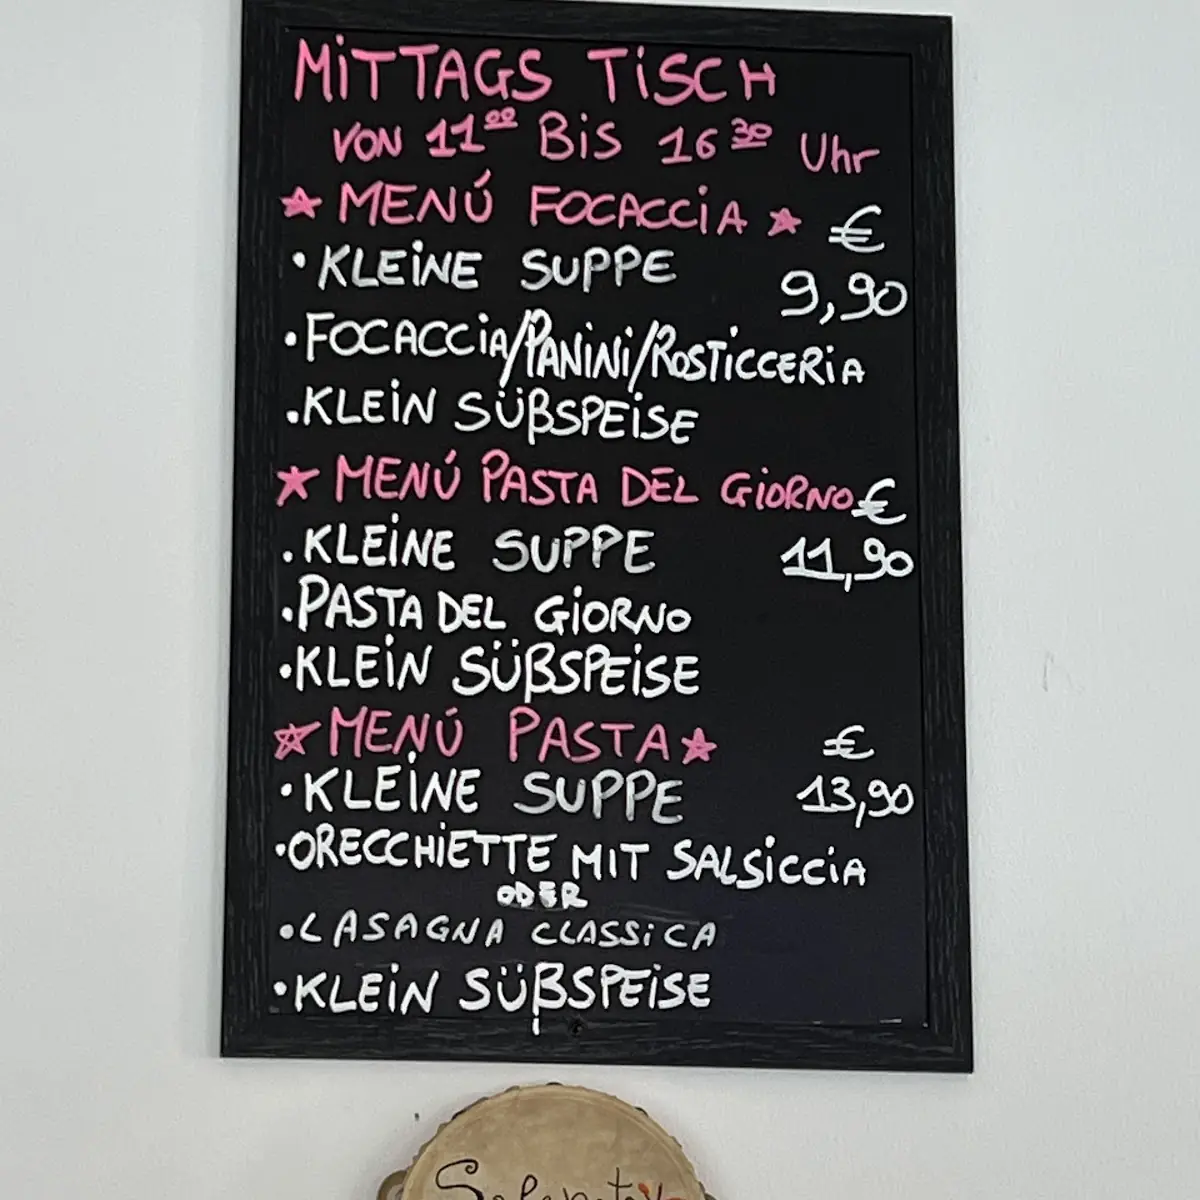 MiTTAGS TiSCH
VON 11⁰⁰ BiS 16³⁰ Uhr
★ MENÚ FOCACCiA ★ €
• KLEiNE SUPPE 9,90
• FOCACCiA/PANiNi/ROSTiCCERiA
• KLEiN SÜßSPEiSE
★ MENÚ PASTA DEL GiORNO €
• KLEiNE SUPPE 11,90
• PASTA DEL GiORNO
• KLEiN SÜßSPEiSE
★ MENÚ PASTA ★ €
• KLEiNE SUPPE 13,90
• ORECCHiETTE MIT SALSiCCiA
ODER
• LASAGNA CLASSiCA
• KLEiN SÜßSPEiSE